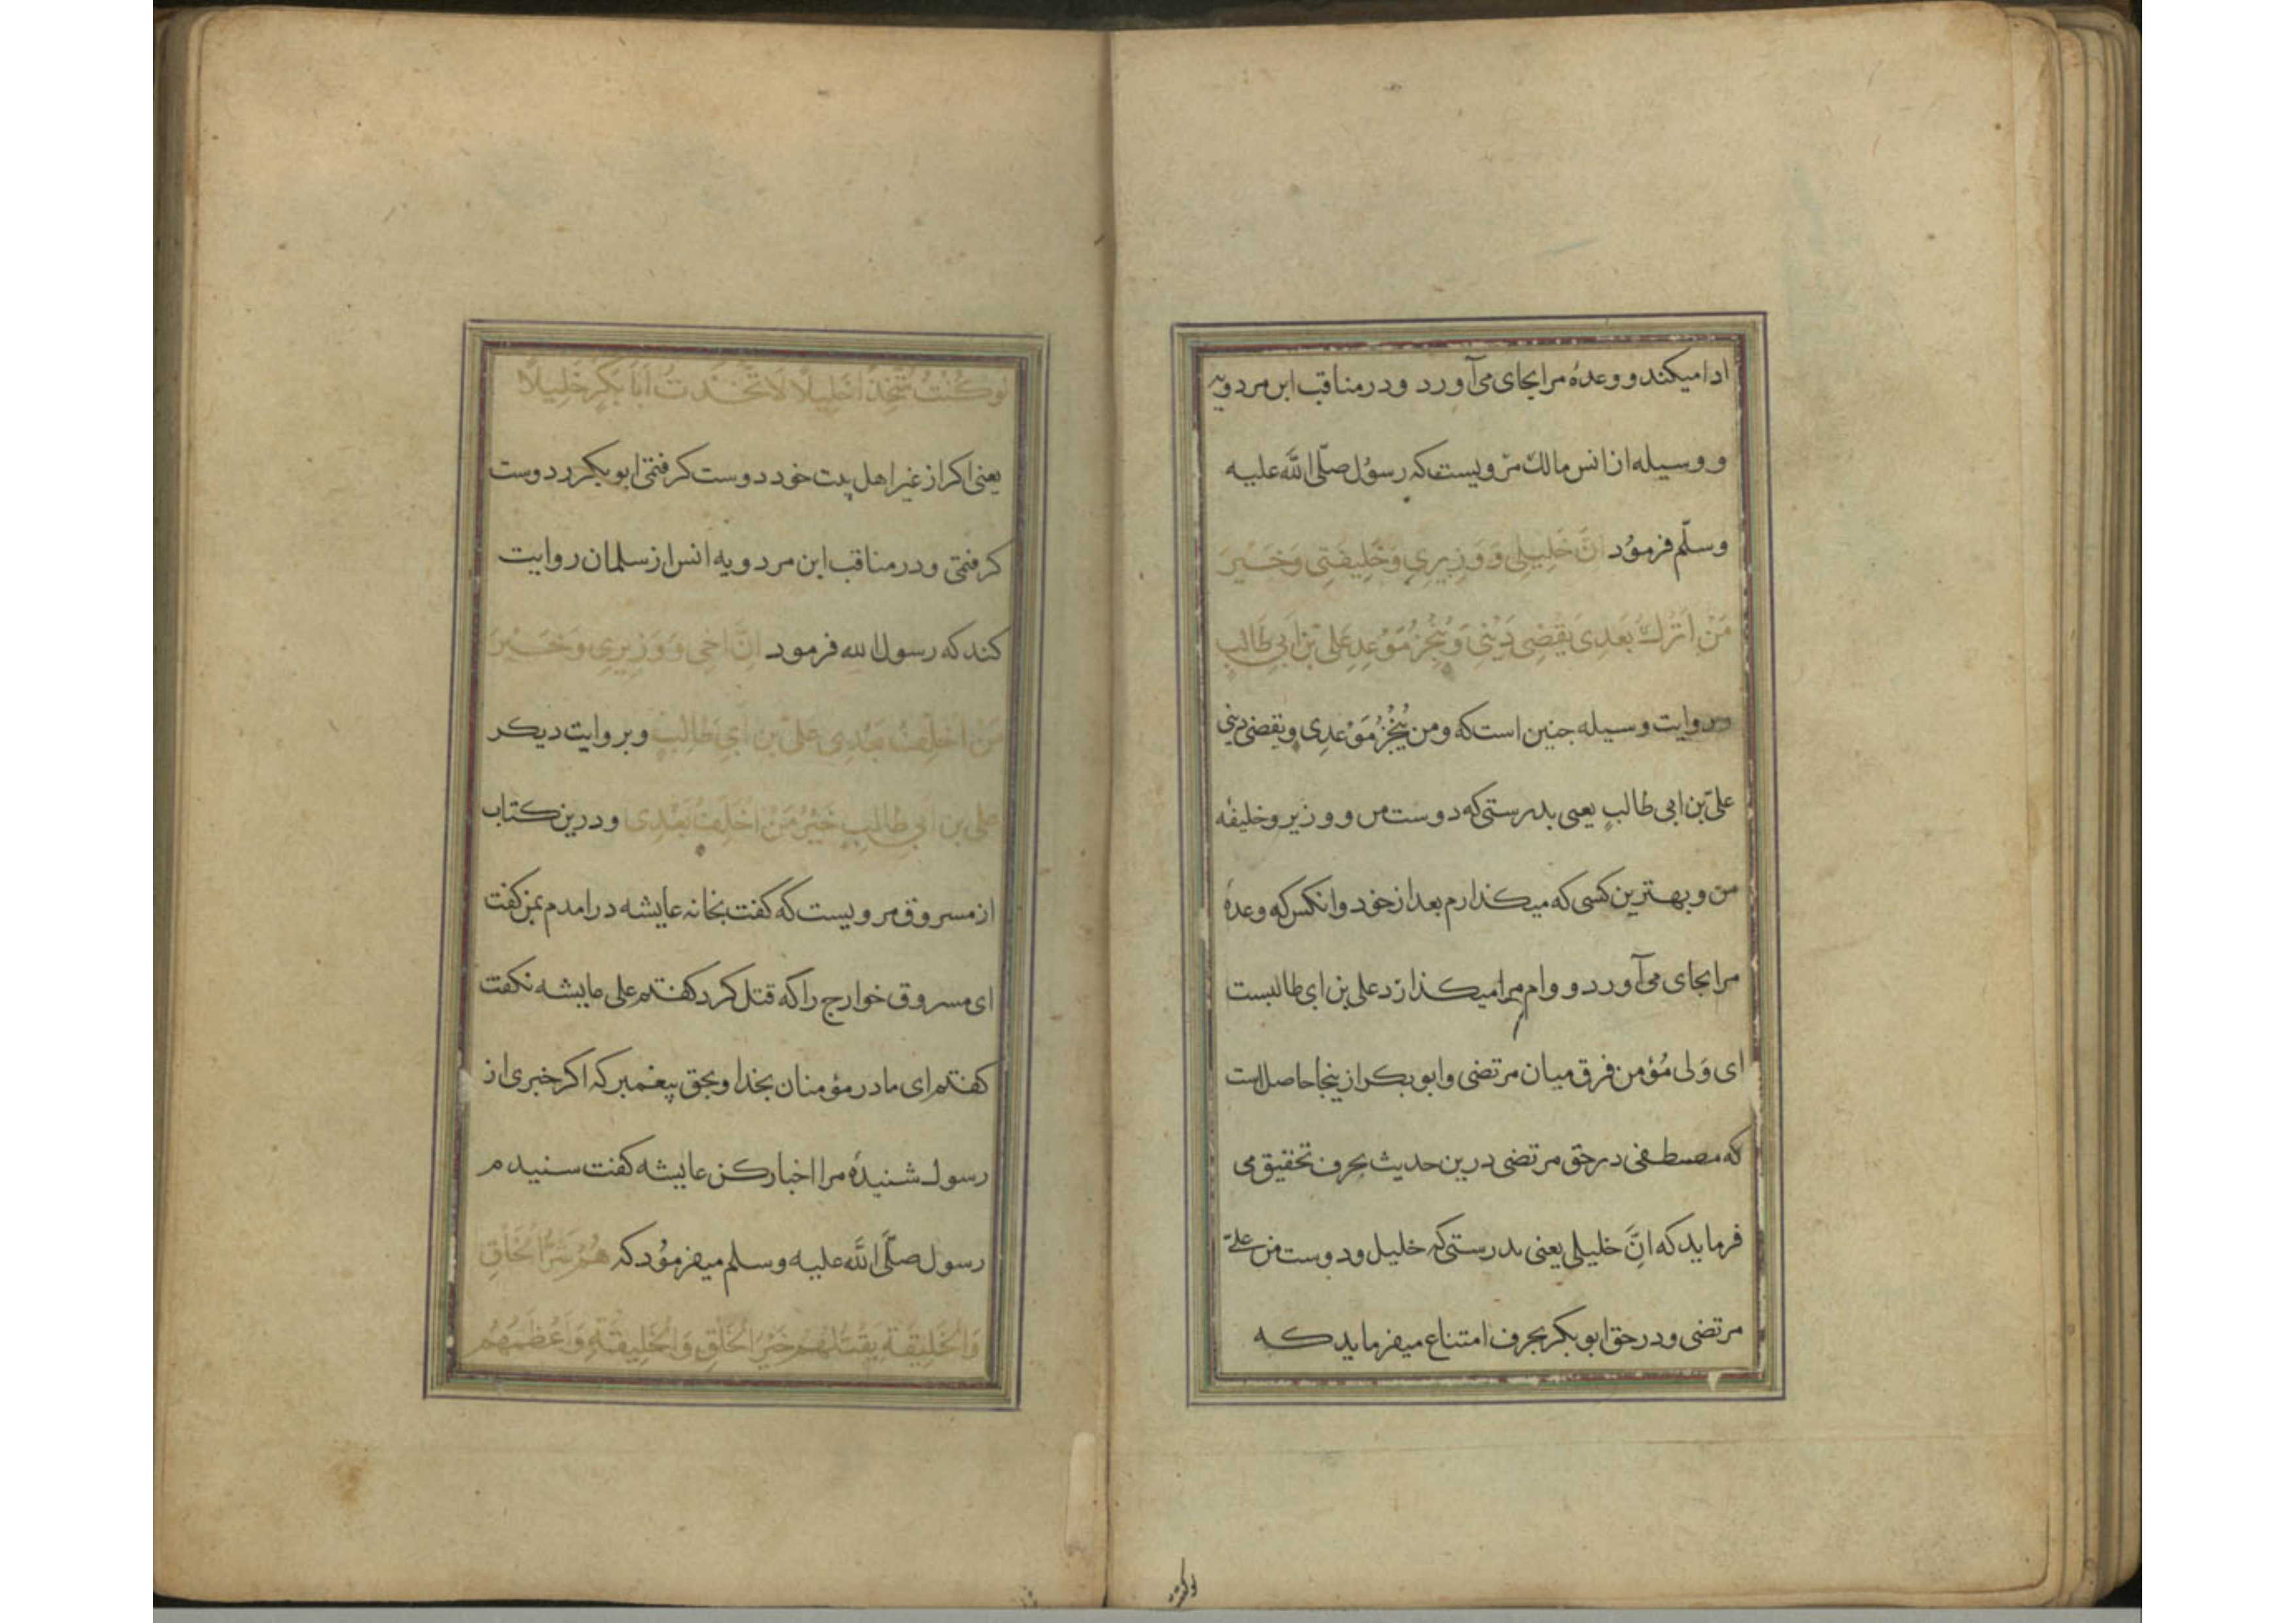 ادا میکند و وعدهٔ مرا بجای می‌آورد و در مناقب ابن مردویه
و وسیله از انس مالک مرویست که رسول صلّی الله علیه
وسلّم فرمود انَّ خَلِیلِی وَ وَزِیرِی وَخَلِیفَتِی وَخَیرَ
مَنْ اَتْرُكُ بَعْدِی یَقْضِی دَیْنِی وَیُنْجِزُ مَوْعِدِی عَلِیّ بْنِ اَبِی طَالِبٍ
و روایت وسیله جنین است که ومن یُنْجِزُ مَوْعِدِی ویقضی دینی
علیّ بن ابی طالبٍ یعنی بدرستی که دوست من و وزیر و خلیفه
من و بهترین کسی که میکذارم بعد از خود و انکس که وعدهٔ
مرا بجای می‌آورد و وام مرا میکذارد علی بن ابی طالبست
ای وَلی مُؤمن فرق میان مرتضی و ابوبکر از ینجا حاصل است
که مصطفی در حق مرتضی درین حدیث بحرف تحقیق می
فرماید که انَّ خلیلی یعنی بدرستی که خلیل و دوست من علیّ
مرتضی و در حق ابوبکر بحرف امتناع میفرماید که
لو كُنْتُ مُتَّخِذًا خَلِیلًا لَاتَّخَذْتُ اَبَا بَكْرٍ خَلِیلًا
یعنی اکر از غیر اهل بیت خود دوست کرفتمی ابوبکر دوست
کرفتمی و در مناقب ابن مردویه انس از سلمان روایت
کند که رسول الله فرمود اِنَّ اَخِی وَ وَزِیرِی وَخَیْرَ
مَنْ اَخْلِفُ بَعْدِی عَلِی بْنِ اَبِی طَالِبٍ و بروایت دیکر
علی بن ابی طالبٍ خَیْرُ مَنْ اَخْلِفُ بَعْدِی و درین کتاب
از مسروق مرویست که کفت بخانه عایشه درامدم بمن کفت
ای مسروق خوارج را که قتل کرد کفتم علی عایشه نکفت
کفتم ای مادر مؤمنان بخدا و بحق پیغمبر که اکر خبری از
رسول شنیدهٔ مرا اخبار کن عایشه کفت شنیدم
رسول صلّی الله علیه وسلم میفرمود که هُمْ شَرُّ الْخَلْقِ
وَالْخَلِیقَةِ یَقْتُلُهُمْ خَیْرُ الْخَلْقِ وَالْخَلِیقَةِ وَاَعْظَمُهُمْ